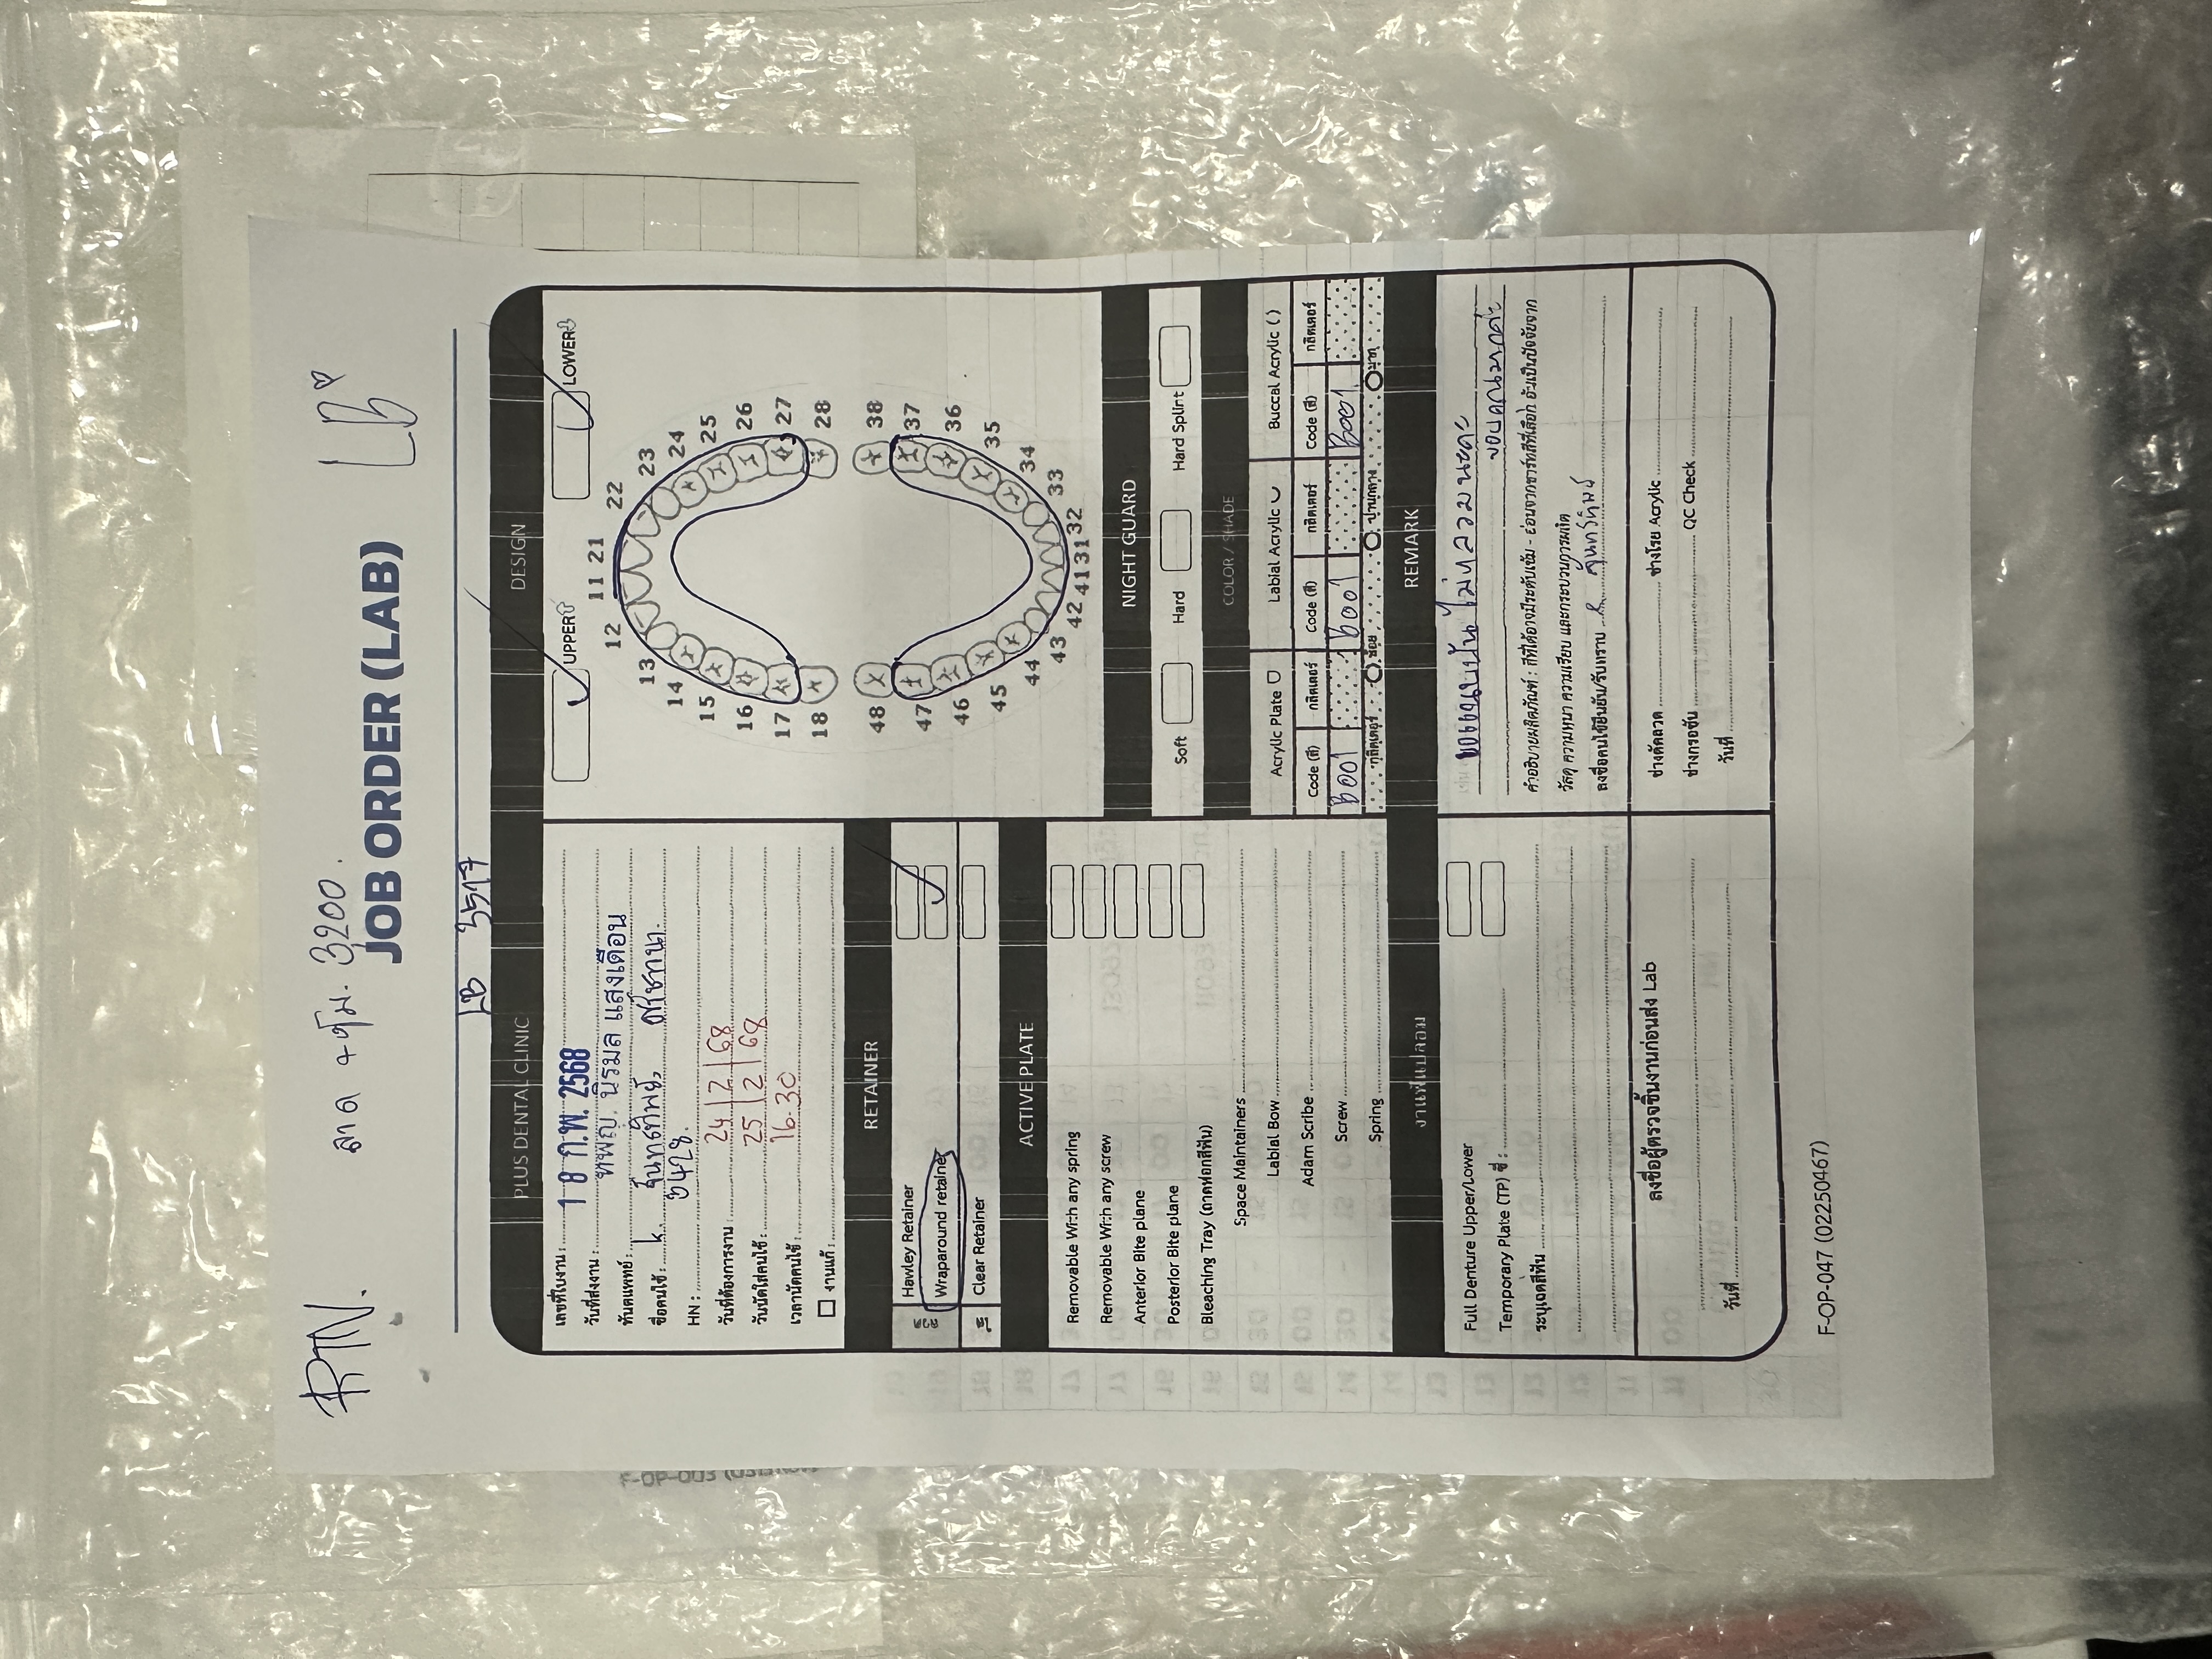 RTN.
ลาด + หุ้ม. 3,200.
LB
JOB ORDER (LAB)
LB 3517
PLUS DENTAL CLINIC
เลขที่ใบงาน :
วันที่ส่งงาน : 18 ก.พ. 2568
ทันตแพทย์ : ทพญ. นิรมล แสงเดือน
ชื่อคนไข้ : k. จันทรทิพย์
HN : 3428.
วันที่ต้องการงาน : 24 | 2 | 68
วันนัดใส่คนไข้ : 25 | 2 | 68
เวลานัดคนไข้ : 16.30
งานแก้ :
RETAINER
ลวด
Hawley Retainer
Wraparound retainer
ใส
Clear Retainer
ACTIVE PLATE
Removable With any spring
Removable With any screw
Anterior Bite plane
Posterior Bite plane
Bleaching Tray (ถาดฟอกสีฟัน)
Space Maintainers
Labial Bow
Adam Scribe
Screw
Spring
งานฟันปลอม
Full Denture Upper/Lower
Temporary Plate (TP) ซี่ :
ระบุเฉดสีฟัน
ลงชื่อผู้ตรวจชิ้นงานก่อนส่ง Lab
วันที่
DESIGN
UPPER LOWER
11 21
12 22
13 23
14 24
15 25
16 26
17 27
18 28
48 38
47 37
46 36
45 35
44 34
43 33
42 41 31 32
NIGHT GUARD
Soft Hard Hard Splint
COLOR / SHADE
Acrylic Plate Labial Acrylic Buccal Acrylic ( )
Code (สี) กลิตเตอร์ Code (สี) กลิตเตอร์ Code (สี) กลิตเตอร์
B001 B001 B001
กลิตเตอร์ น้อย ปานกลาง มาก
REMARK
ขอแนบฟัน ไม่หลวมนะคะ
ขอบคุณมากค่ะ
คำอธิบายผลิตภัณฑ์ : สีที่ได้อาจมีระดับเข้ม - อ่อนจากชาร์ทสีที่เลือก อันเป็นปัจจัยจาก
วัสดุ ความหนา ความเรียบ และกระบวนการผลิต
ลงชื่อคนไข้ยืนยัน/รับทราบ จันทร์ทิพย์
ช่างดัดลวด ช่างโรย Acrylic
ช่างกรอขัน QC Check
วันที่
F-OP-047 (02250467)